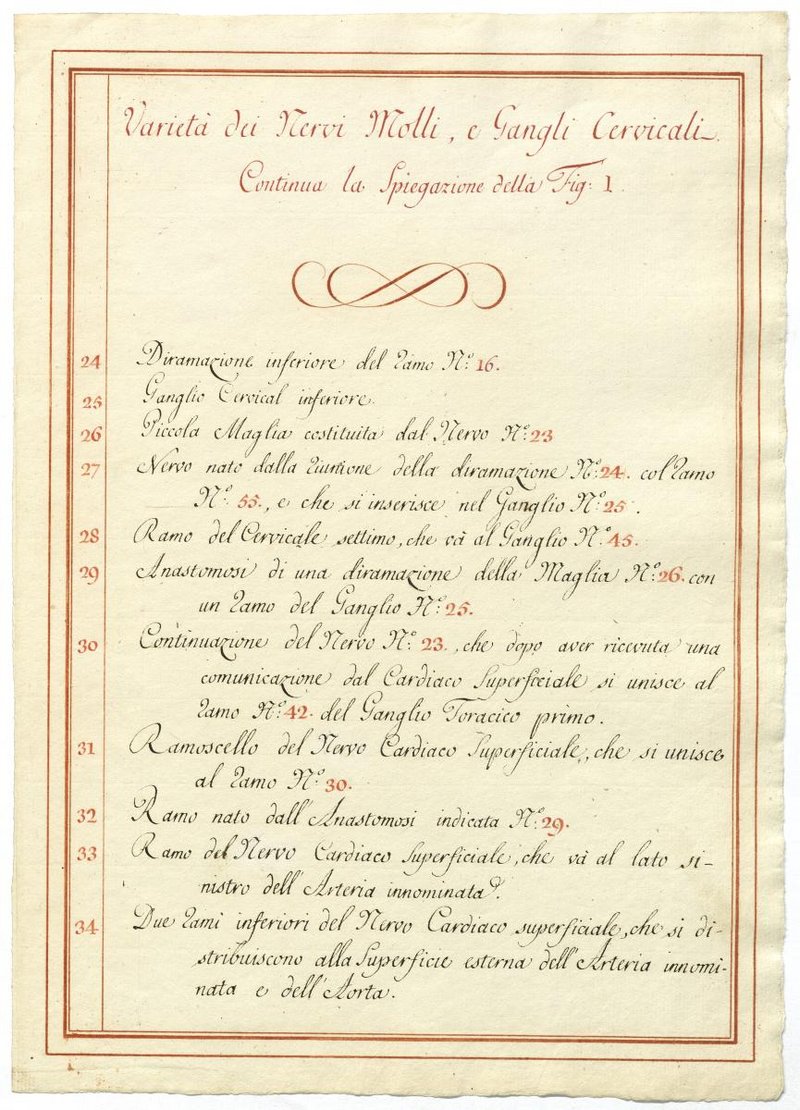 Varietà dei Nervi Molli, e Gangli Cervicali.
Continua la Spiegazione della Fig: 1
24 Diramazione inferiore del ramo N.º 16.
25 Ganglio Cervical inferiore
26 Piccola Maglia costituita dal Nervo N.º 23
27 Nervo nato dalla riunione della diramazione N.º 24. col ramo
N.º 55., e che si inserisce nel Ganglio N.º 25.
28 Ramo del Cervicale settimo, che và al Ganglio N.º 45.
29 Anastomosi di una diramazione della Maglia N.º 26. con
un ramo del Ganglio N.º 25.
30 Continuazione del Nervo N.º 23., che dopo aver ricevuta una
comunicazione dal Cardiaco Superficiale si unisce al
ramo N.º 42. del Ganglio Toracico primo.
31 Ramoscello del Nervo Cardiaco Superficiale, che si unisce
al ramo N.º 30.
32 Ramo nato dall'Anastomosi indicata N.º 29.
33 Ramo del Nervo Cardiaco Superficiale, che và al lato si-
nistro dell'Arteria innominata.
34 Due rami inferiori del Nervo Cardiaco superficiale, che si di-
stribuiscono alla Superficie esterna dell'Arteria innomi-
nata e dell'Aorta.